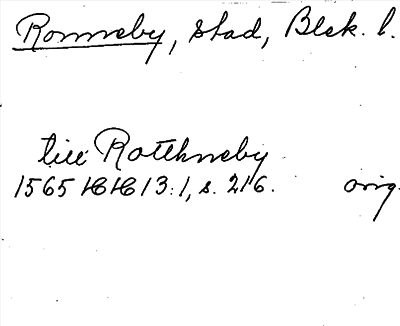 Ronneby, stad, Blek. l.
till Rottkneby
1565 HH 13:1, s. 216. orig.